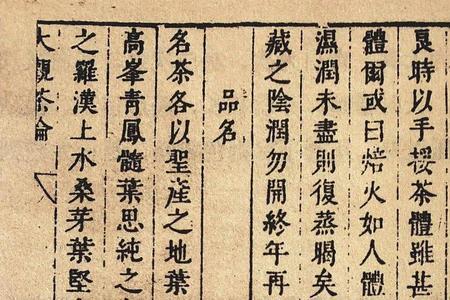 良時以手挼茶體雖甚
體爾或曰焙火如人體
濕潤未盡則復蒸暍矣
藏之陰潤勿開終年再
品名
名茶各以聖產之地葉
高峯青鳳髓葉思純之
之羅漢上水桑芽葉堅
大觀茶論